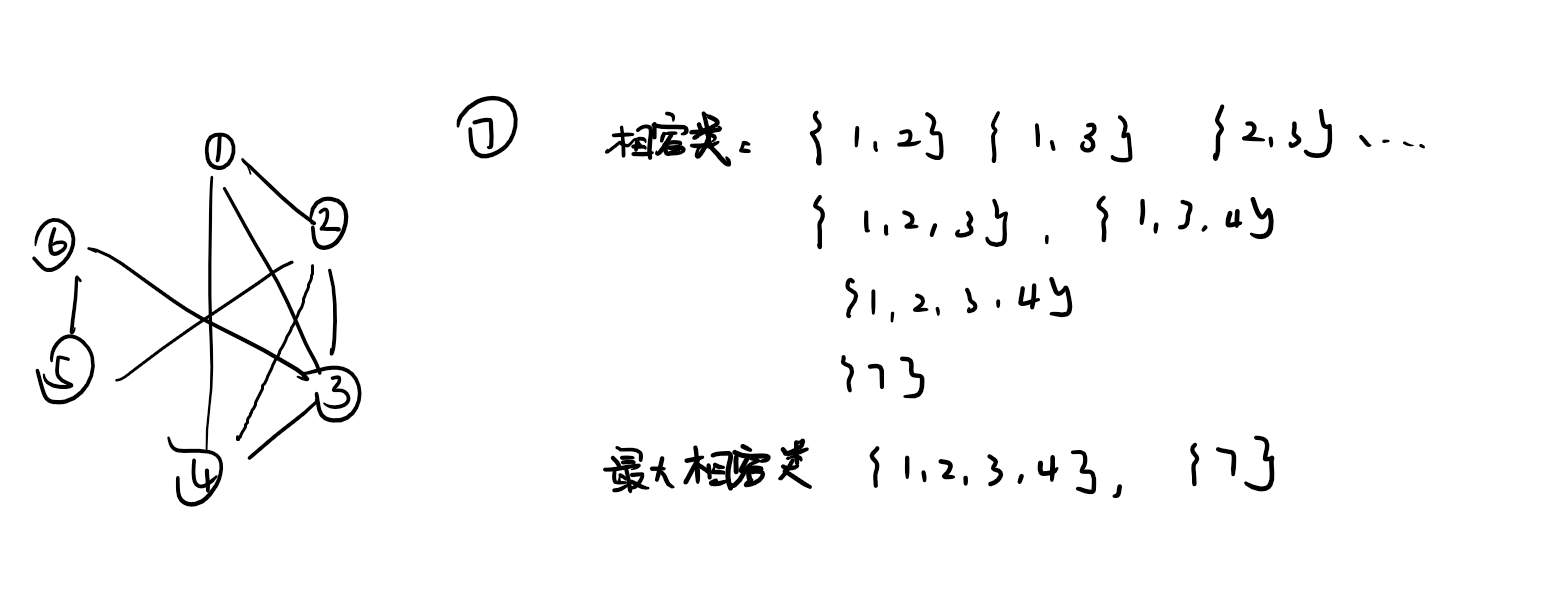 ① ② ③ ④ ⑤ ⑥
⑦
相容类: {1,2} {1,3} {2,3} ....
{1,2,3}, {1,3,4}
{1,2,3,4}
{7}
最大相容类 {1,2,3,4}, {7}